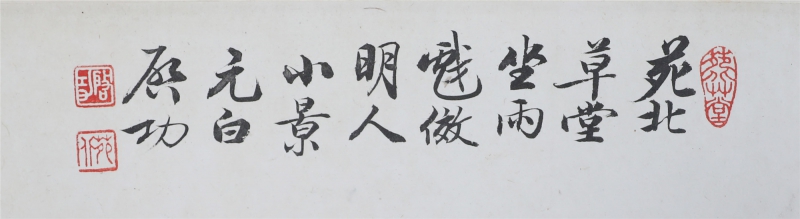 苑北
草堂
坐雨
戲倣
明人
小景
元白
启功